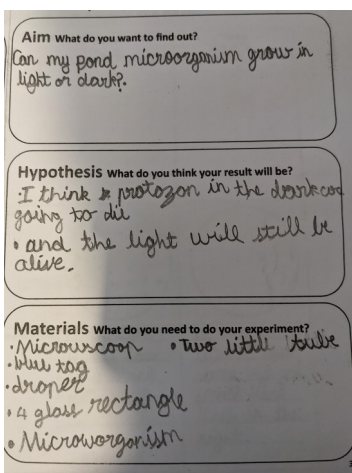 Aim What do you want to find out?
Can my pond microorganism grow in
light or dark?.
Hypothesis What do you think your result will be?
·I think protozon in the dark
going to die
• and the light will still be
alive.
Materials What do you need to do your experiment?
·Microwscoop •Two little tube
·blue tag
·droper
•4 glass rectangle
•Microworganism